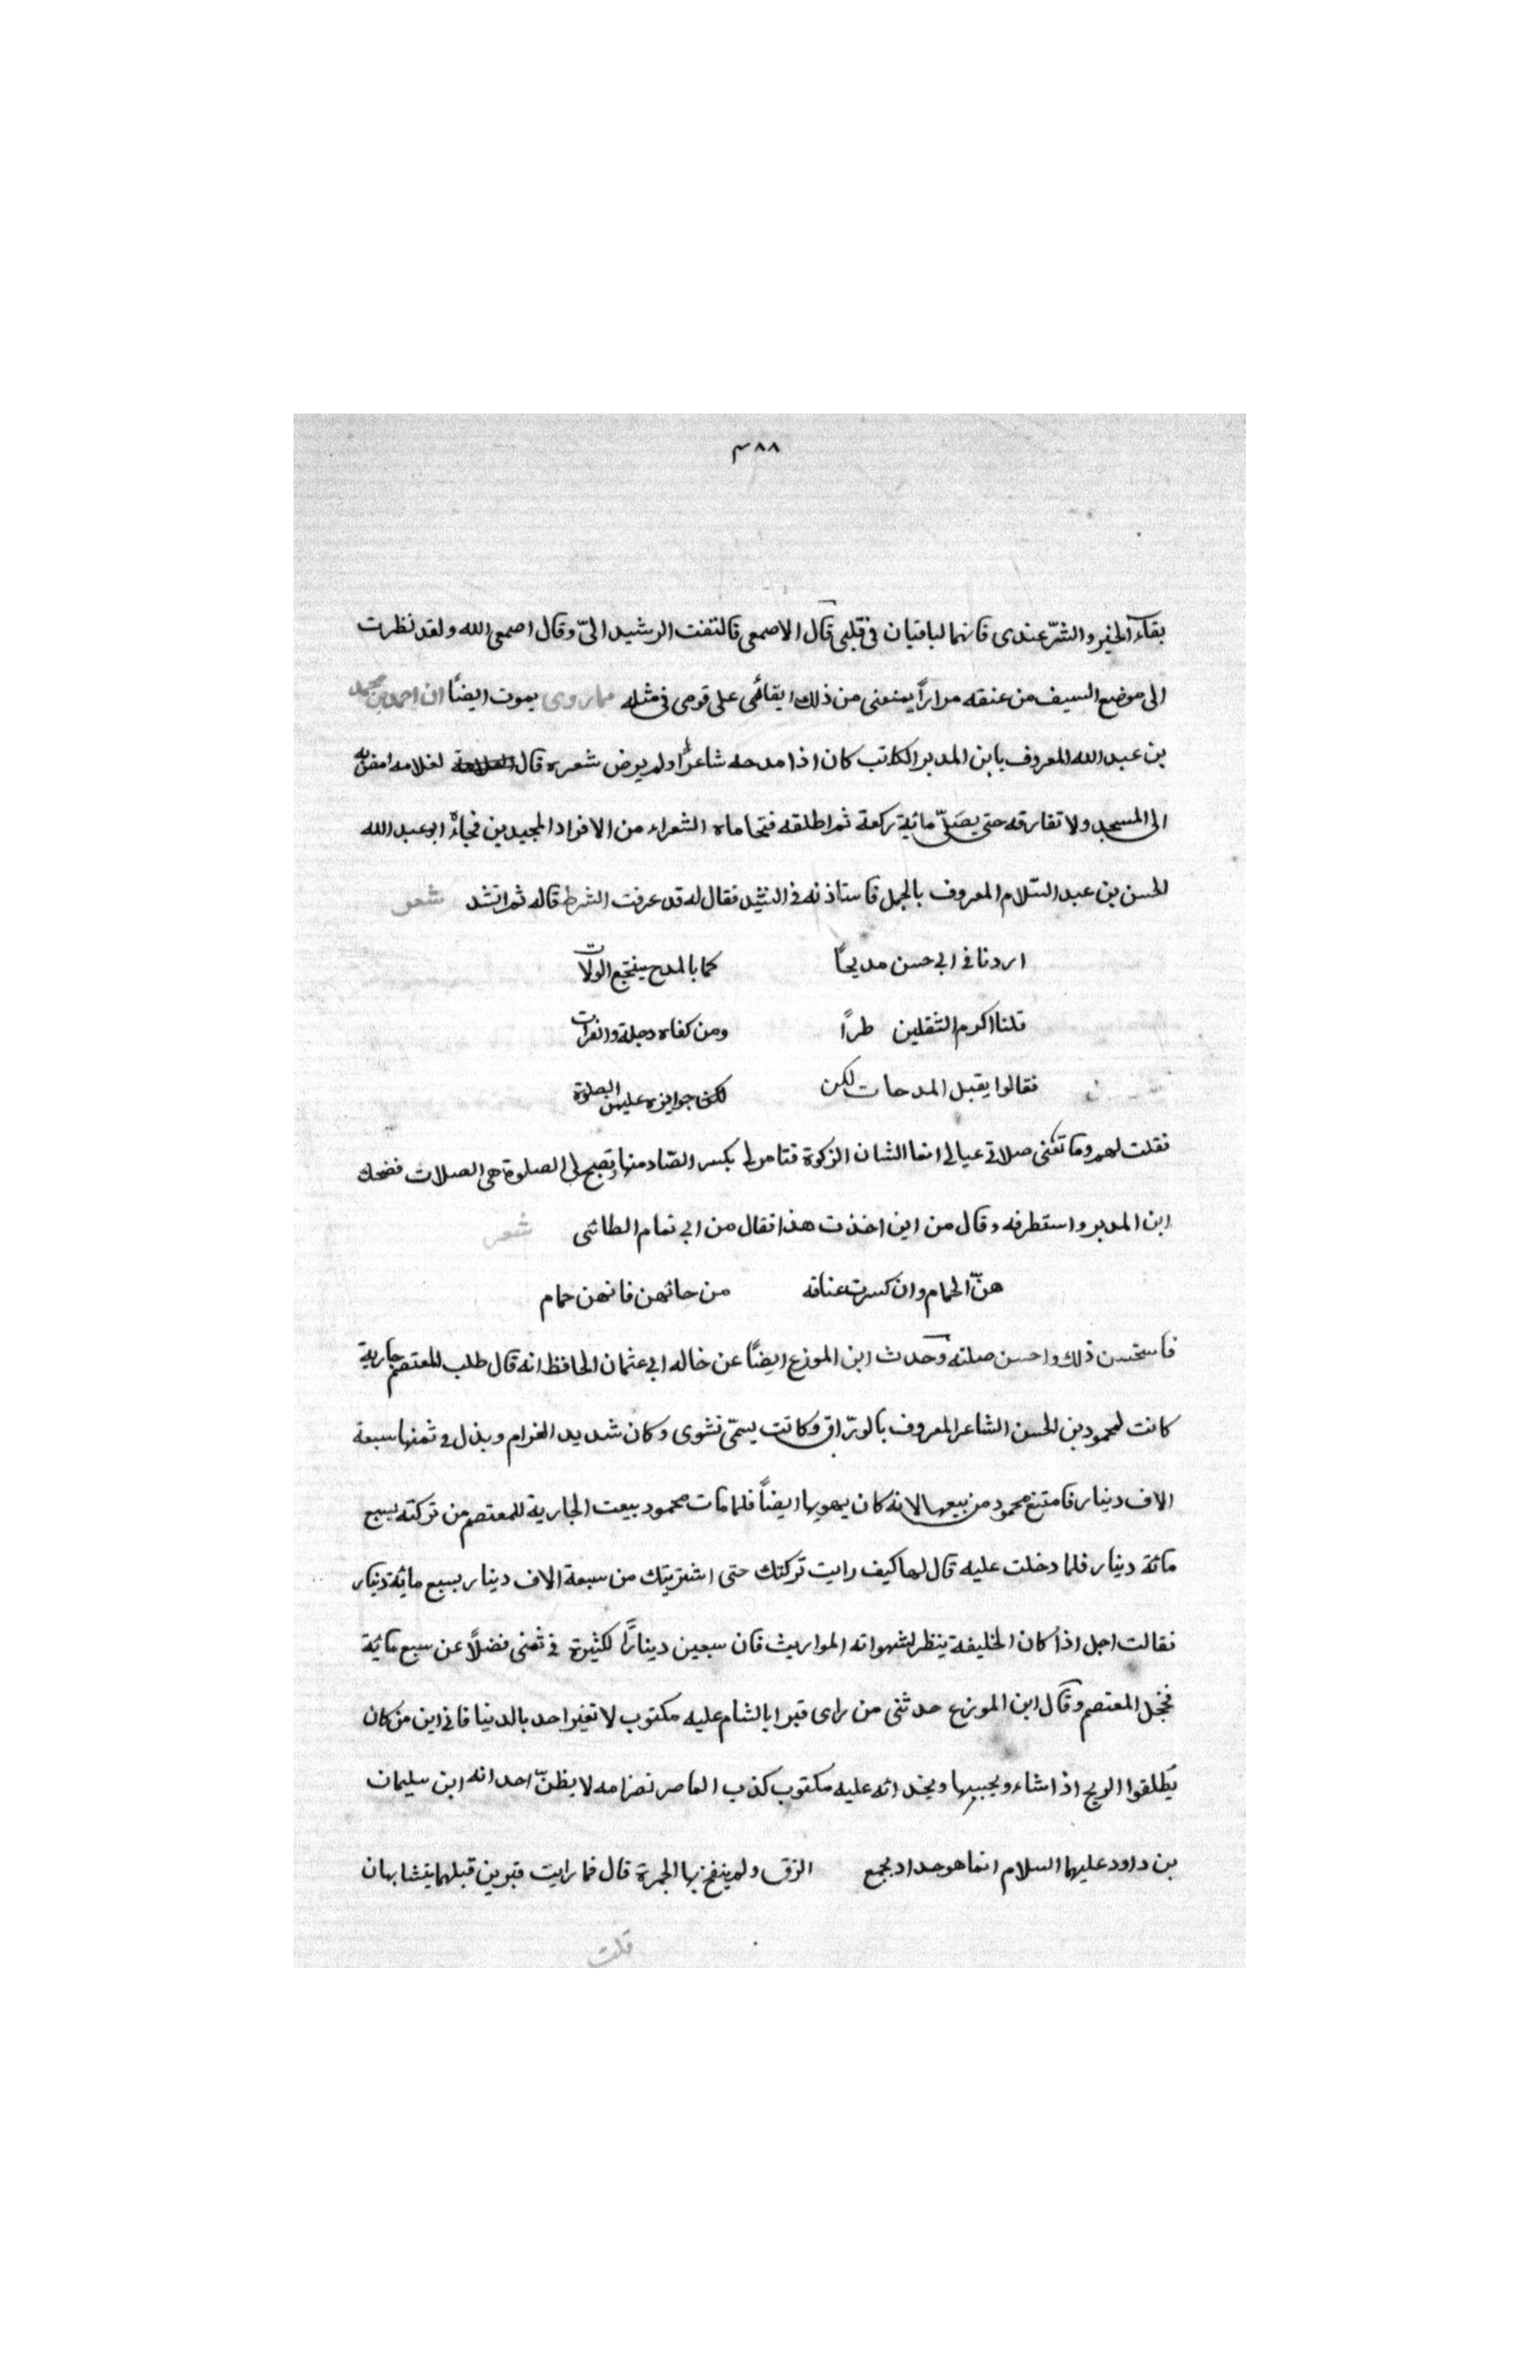 ٣٨٨
بقاء الخير والشرّ عندى فانهما لباقيان فى قلبى قال الاصمعى فالتفت الرشيد الىّ وقال اصمعى الله ولقد نظرت
الى موضع السيف من عنقه مراراً يمنعنى من ذلك ابقائى على قومى فى مثله مماروى يموت ايضًا ان احمد بن محمد
بن عبد الله المعروف بابن المدبر الكاتب كان اذا مدحه شاعرًا ولم يرض شعره قال لغلامه امض به
الى المسجد ولا تفارقه حتى يصَلّى مائية ركعة ثم اطلقه فتحاماه الشعراء من الافراد المجيدين فجاءَهُ ابو عبد الله
الحسن بن عبد السّلام المعروف بالجمل فاستاذنه فى النشيد فقال له قد عرفت الشرط قاله ثم انشد شعر
اردنا فى ابى حسن مديحًا كما بالمدح ينتجع الولات
قلنا اكرم الثقلين طرًا ومن كفاه دجلة والفرات
فقالوا يقبل المدحات لكن لكن جوايزه عليهن الصلوة
فقلت لهم وما تغنى صلاتى عيالى انما الشان الزكوة فتامر لى بكسر الصّاد منها وتصبح لى الصلوة هى الصلات فضحك
ابن المدبر واستظرفه وقال من اين اخذت هذا فقال من ابى تمام الطائى شعر
هنّ الحمام وان كسرت عنافه من حائهن فانهن حمام
فاستحسن ذلك واحسن صلته وحدث ابن الموزع ايضًا عن خاله ابى عثمان الحافظ انه قال طلب للمعتصم جارية
كانت لمحمود بن الحسن الشاعر المعروف بالورّاق وكانت يسمّى نشوى وكان شديد الغرام وبذل فى ثمنها سبعة
الاف دينار فامتنع محمود من بيعها لانه كان يهويها ايضاً فلما مات محمود بيعت الجارية للمعتصم من تركته بسبع
مائة دينار فلما دخلت عليه قال لها كيف رايت تركتك حتى اشتريتك من سبعة الاف دينار بسبع مائة دينار
فقالت اجل اذا كان الخليفة ينظر لشهواته المواريث فان سبعين دينارًا لكثيرة فى ثمنى فضلًا عن سبع مائة
فخجل المعتصم وقال ابن الموزع حدثنى من راى قبرا بالشام عليه مكتوب لا تغير احد بالدنيا فانى ابن من كان
يطلقوا الريح اذا شاء ويحبسها وبحذائه عليه مكتوب كذب الماصر نصزامه لا يظنّ احد انه ابن سليمان
بن داود عليهما السلام انما هو حداد يجمع الزق ولم ينفخ بها الجمرة قال فما رايت قبرين قبلهما يتشابهان
قلت